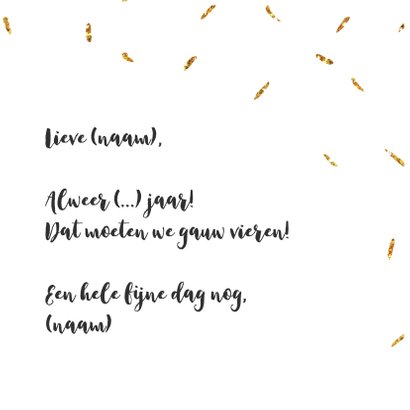 Lieve (naam),
Alweer (...) jaar!
Dat moeten we gauw vieren!
Een hele fijne dag nog,
(naam)